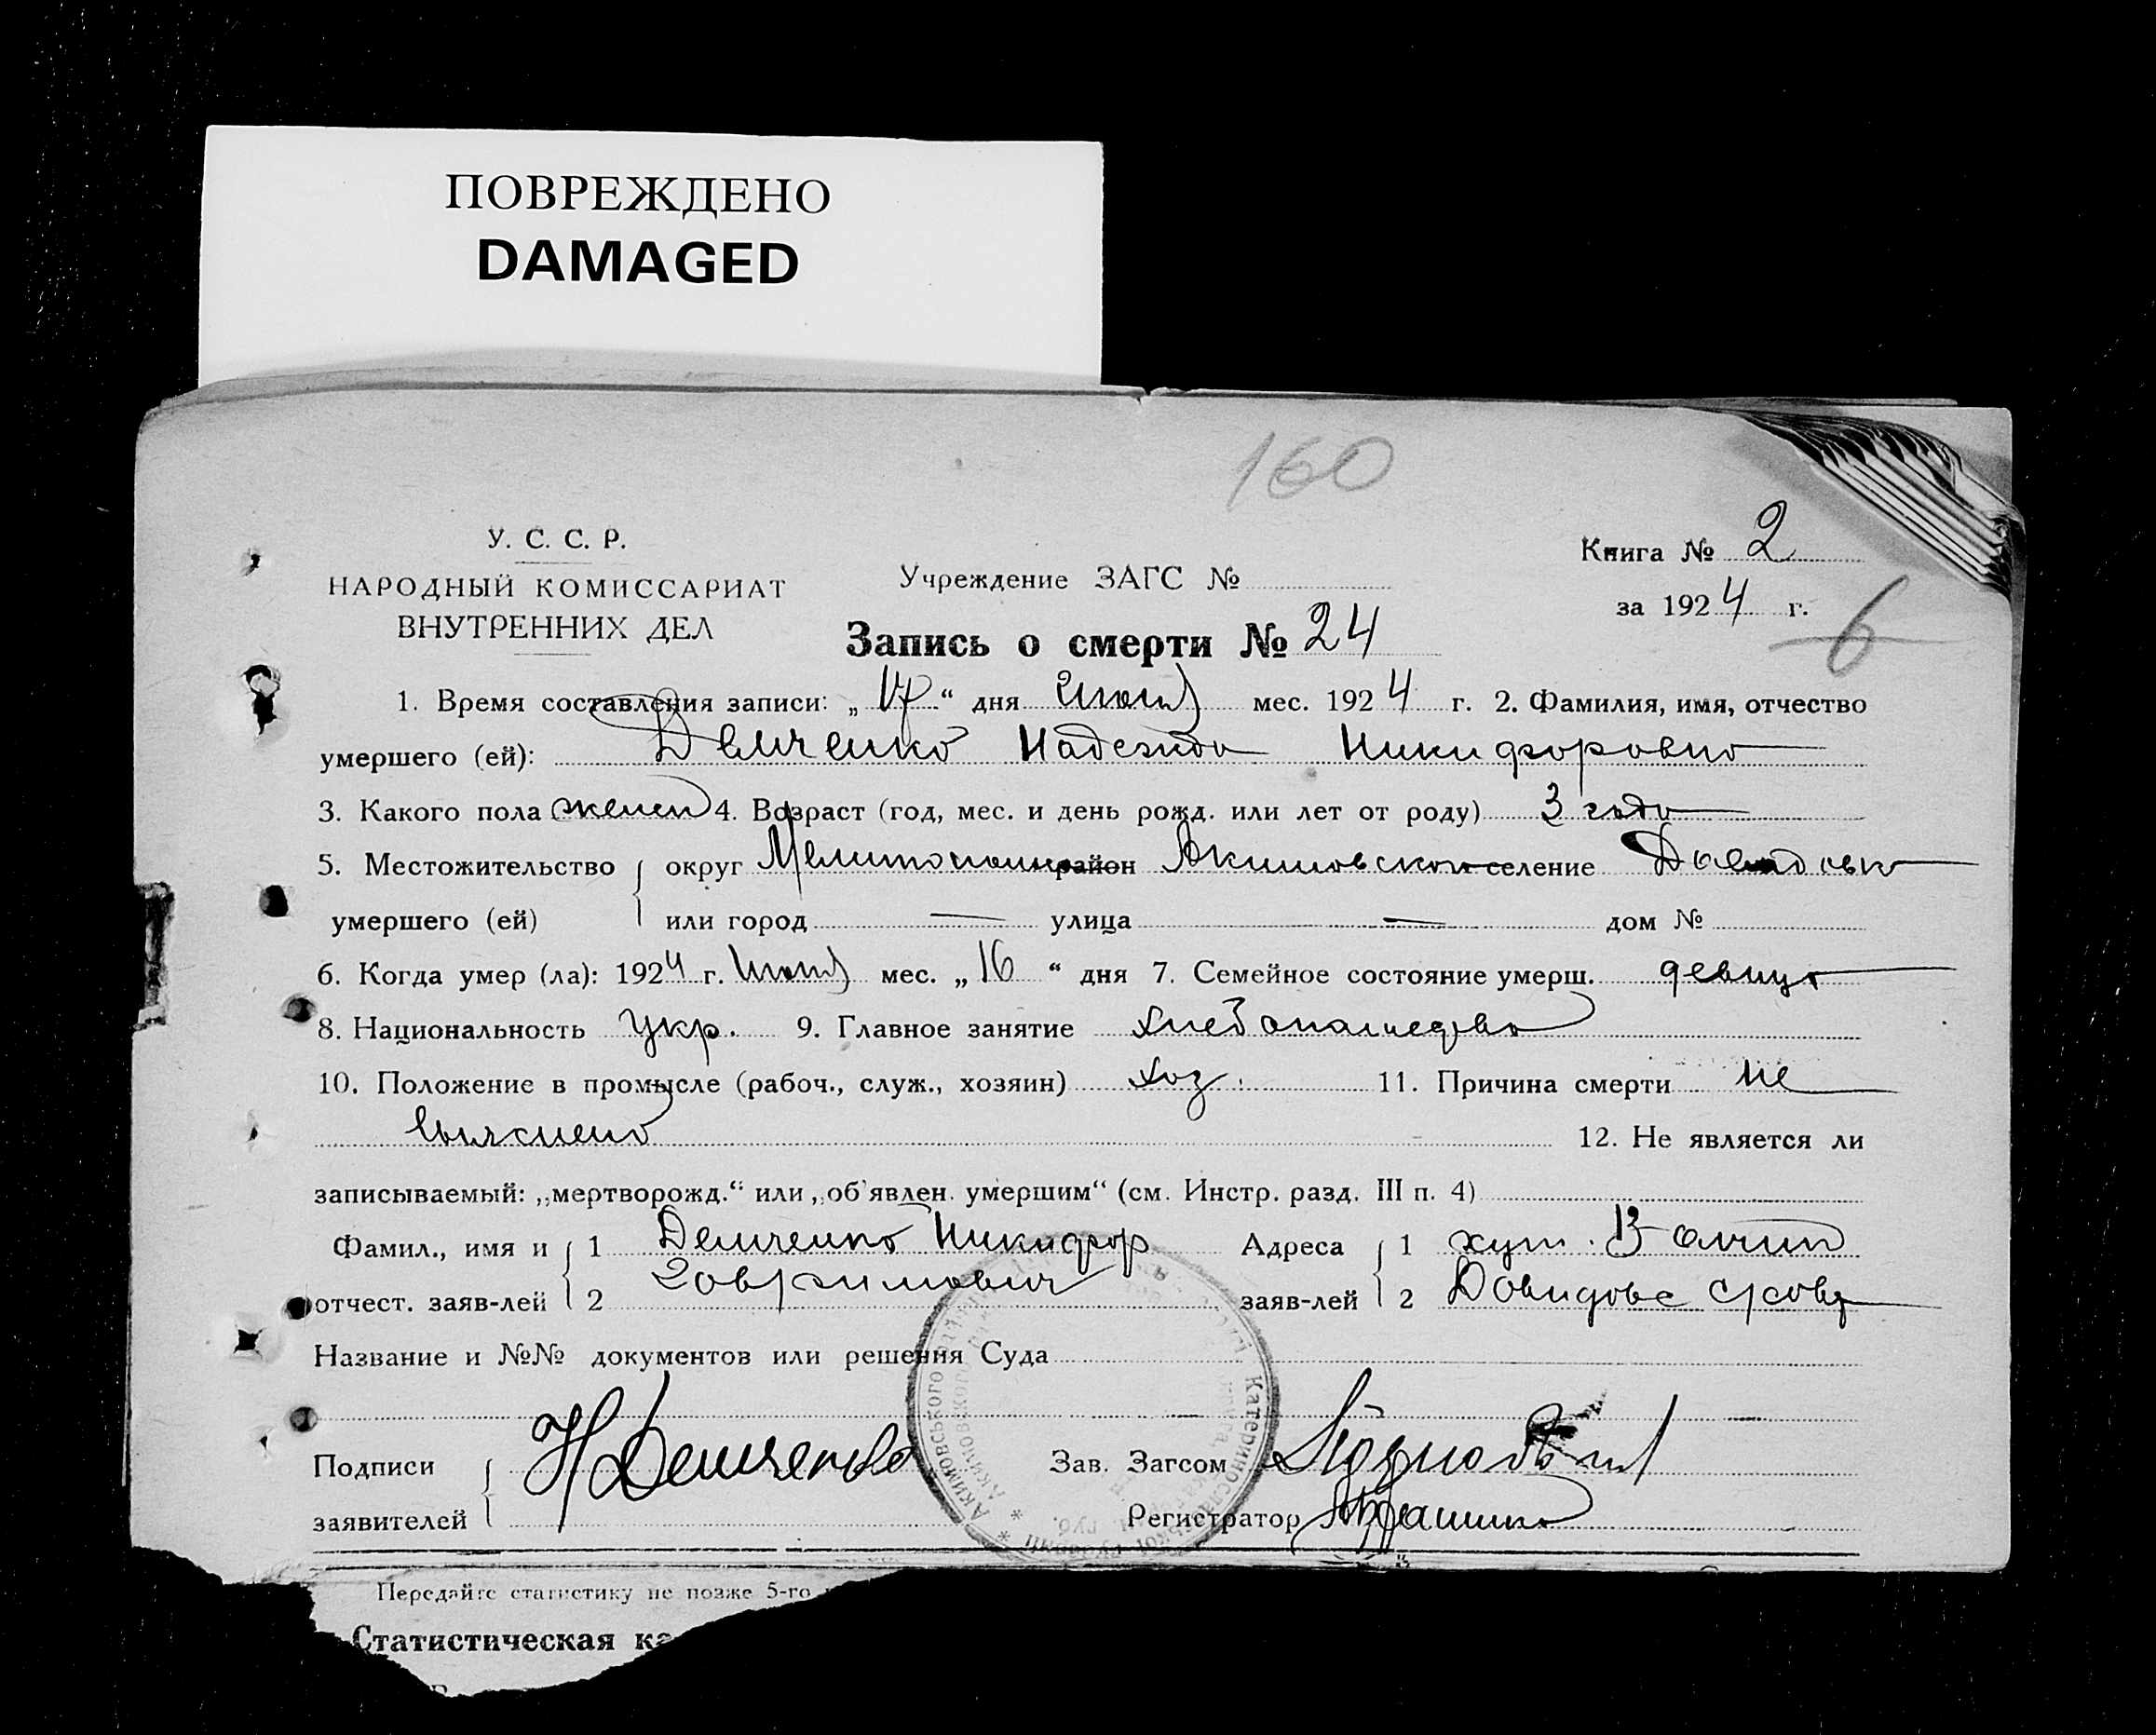 ПОВРЕЖДЕНО
DAMAGED
160
У. С. С. Р.
НАРОДНЫЙ КОМИССАРИАТ
ВНУТРЕННИХ ДЕЛ
Учреждение ЗАГС №
Книга № 2
за 1924 г.
6
Запись о смерти № 24
1. Время составления записи: „17“ дня Июня мес. 1924 г. 2. Фамилия, имя, отчество
умершего (ей): Демченко Надежда Никифоровна
3. Какого пола женск 4. Возраст (год, мес. и день рожд. или лет от роду) 3 года
5. Местожительство округ Мелитопольск район Акимовской селение Давидовка
умершего (ей) или город — улица — дом №
6. Когда умер (ла): 1924 г. Июня мес. „16“ дня 7. Семейное состояние умерш. девица
8. Национальность Укр. 9. Главное занятие хлебопашество
10. Положение в промысле (рабоч., служ., хозяин) хоз. 11. Причина смерти не
выяснено 12. Не является ли
записываемый: „мертворожд.“ или „об'явлен. умершим“ (см. Инстр. разд. III п. 4)
Фамил., имя и 1 Демченко Никифор Адреса 1 хут.
отчест. заяв-лей 2 заяв-лей 2
Название и №№ документов или решения Суда
Подписи Н Демченко Зав. Загсом
заявителей Регистратор
Передайте статистику не позже 5-го
Статистическая ка